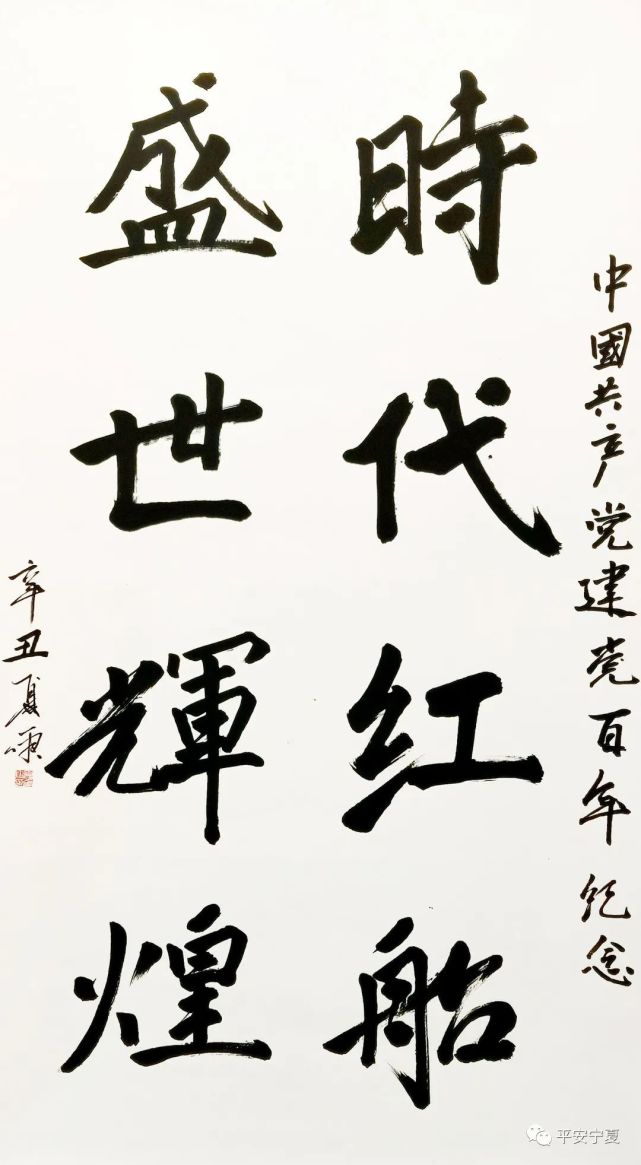 中國共产党建党百年纪念
時代红船
盛世輝煌
辛丑夏頌
平安宁夏